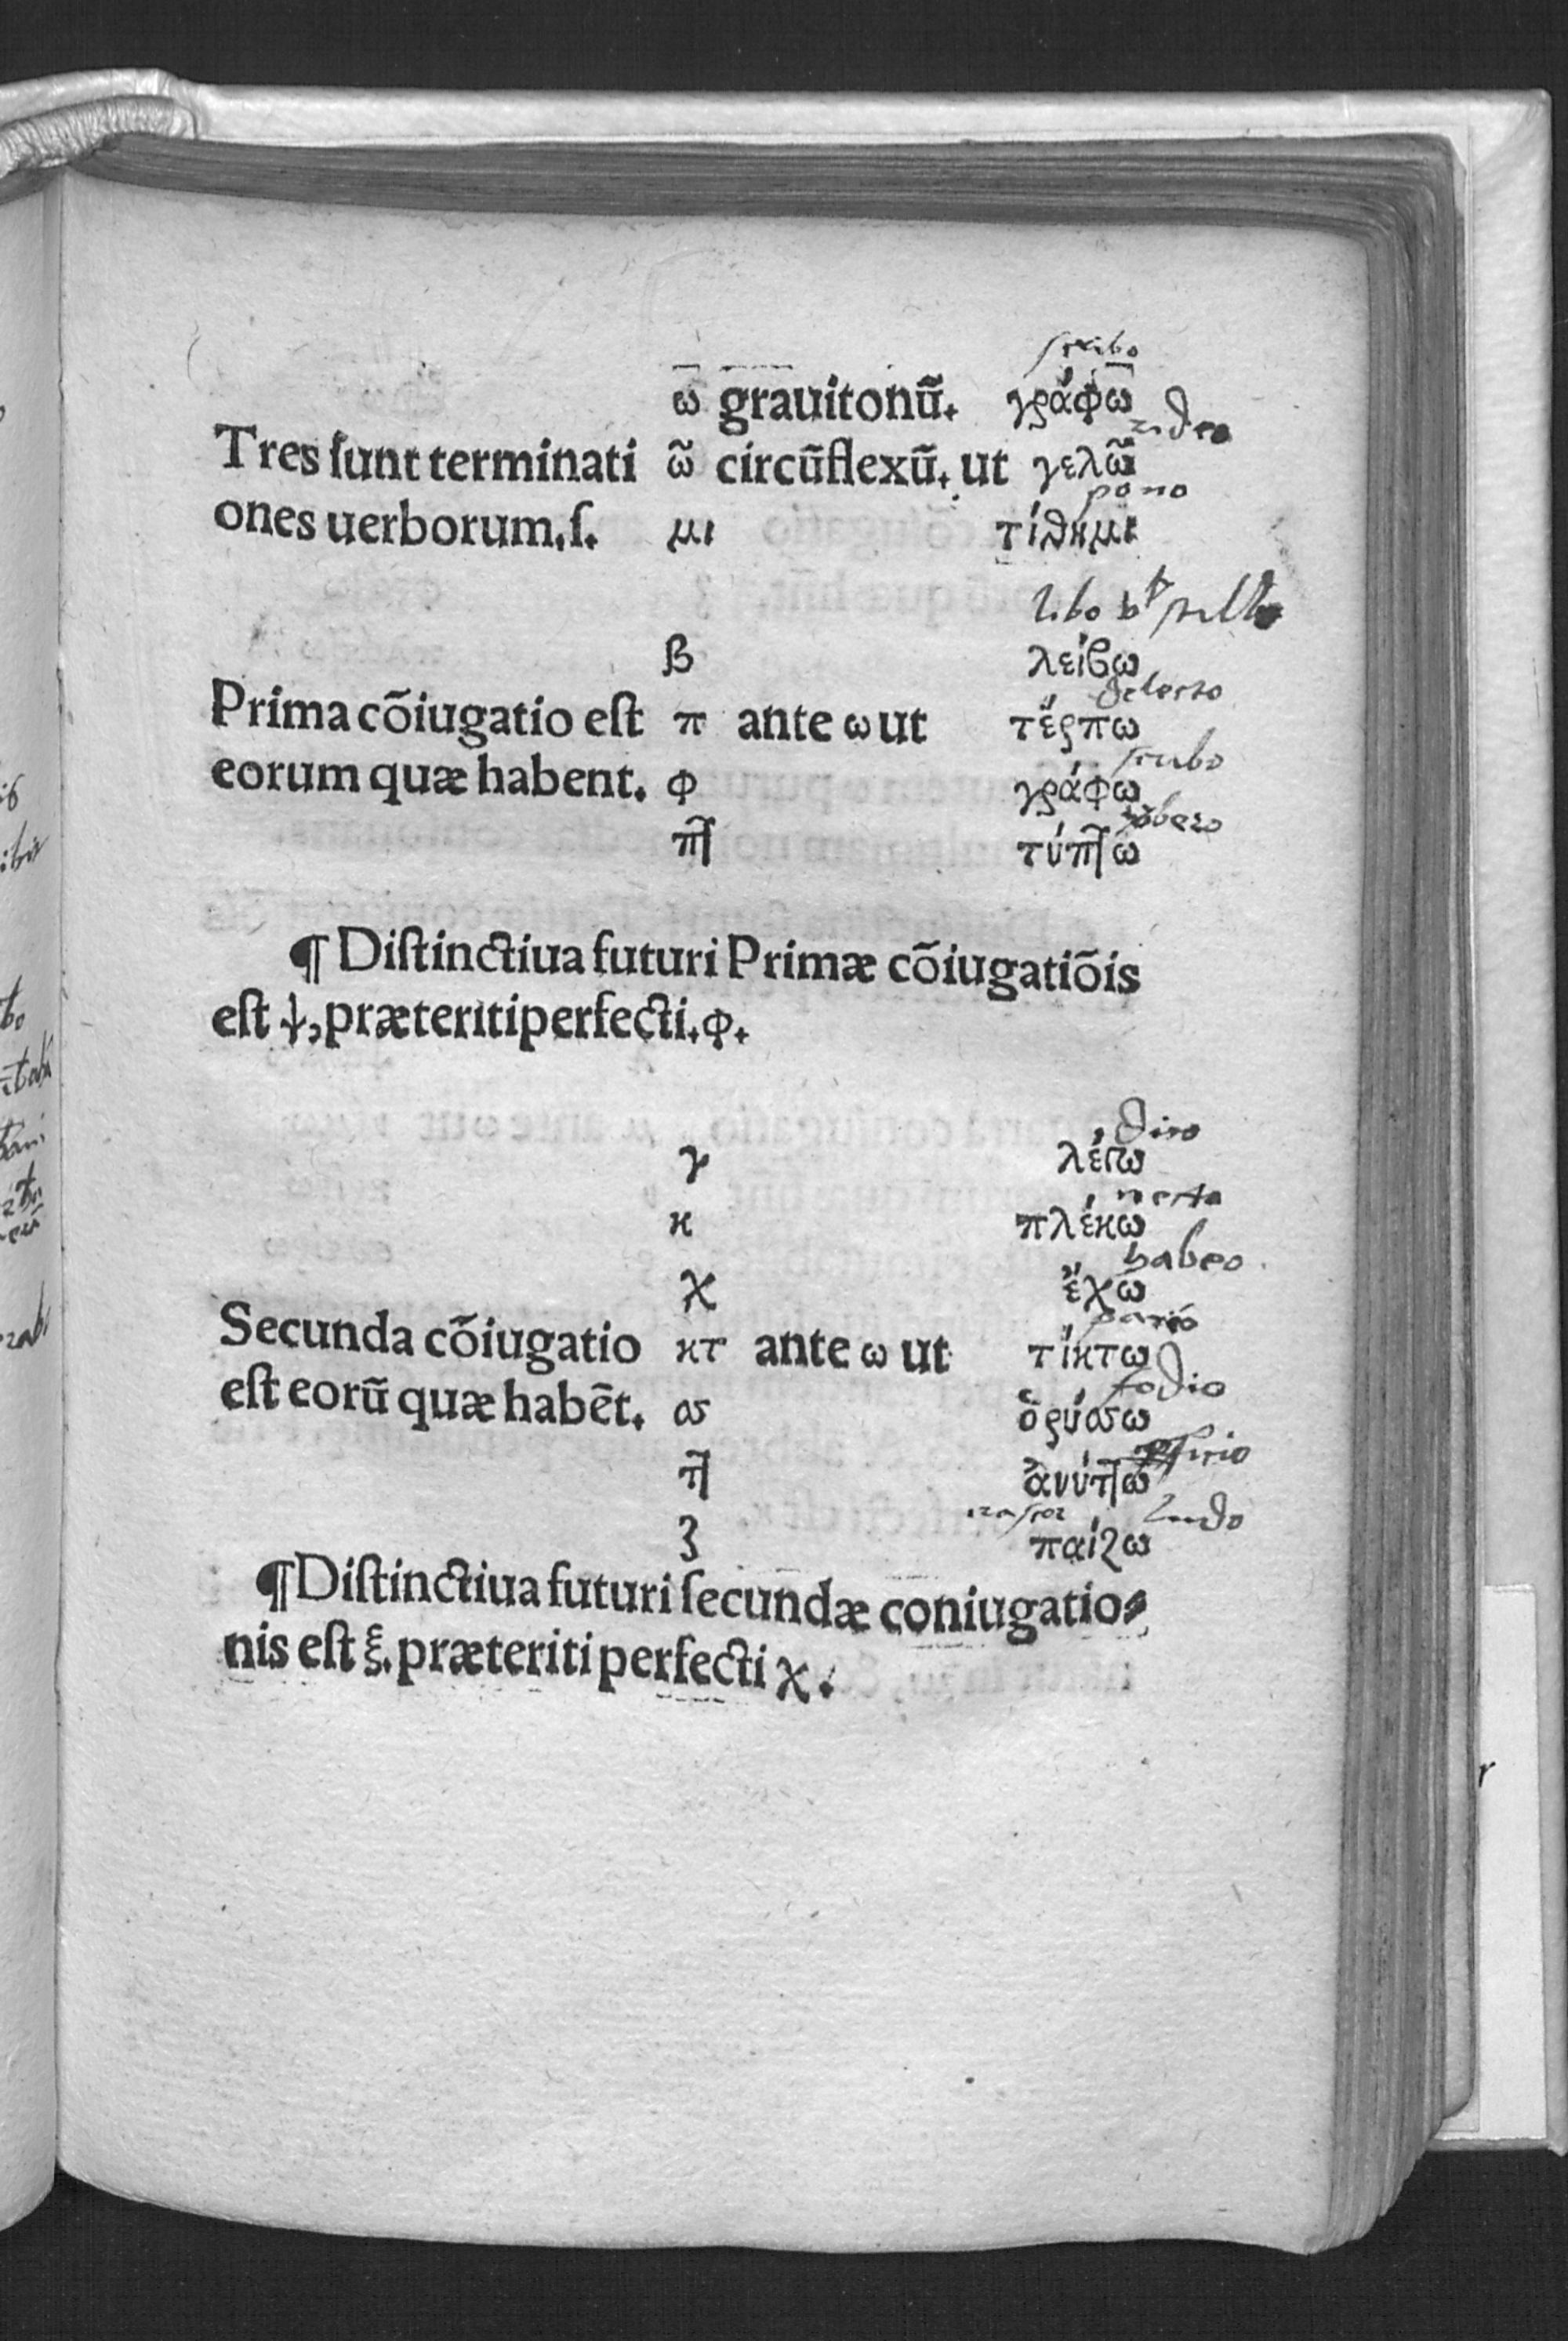 scribo
ω grauitonũ. γράφω
rideo
Tres ſunt terminati ῶ circũflexũ. ut γελῶ
pono
ones uerborum.ſ. μι τίθημι
libo
β λείβω
delecto
Prima cõiugatio eſt π ante ω ut τέρπω
scribo
eorum quæ habent. φ γράφω
πτ τύπτω
¶ Diſtinctiua futuri Primæ cõiugatiõis
eſt ψ, præteritiperfecti. φ.
dico
γ λέγω
necto
κ πλέκω
habeo
χ ἔχω
pario
Secunda cõiugatio κτ ante ω ut τίκτω
fodio
eſt eorũ quæ habẽt. σσ ὀρύσσω
ττ ἀνύττω
ludo
ζ παίζω
¶ Diſtinctiua futuri ſecundæ coniugatio⸗
nis eſt ξ. præteriti perfecti χ.